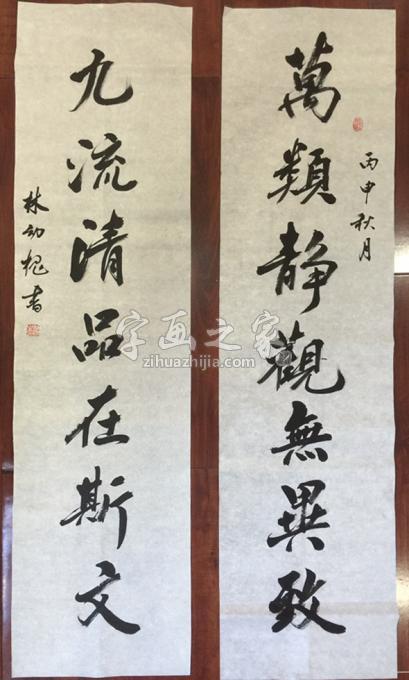 萬類静觀無異致
丙申秋月
九流清品在斯文
林幼槐書
字画之家
zihuazhijia.com